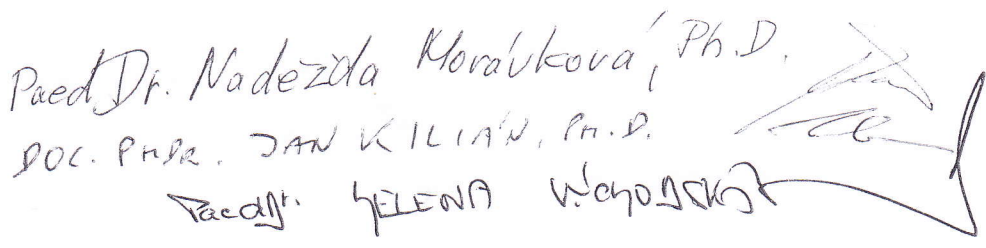 PaedDr. Naděžda Morávková, Ph.D.
DOC. PHDR. JAN KILIÁN, PH.D.
PaedDr. HELENA VÝCHODSKÁ